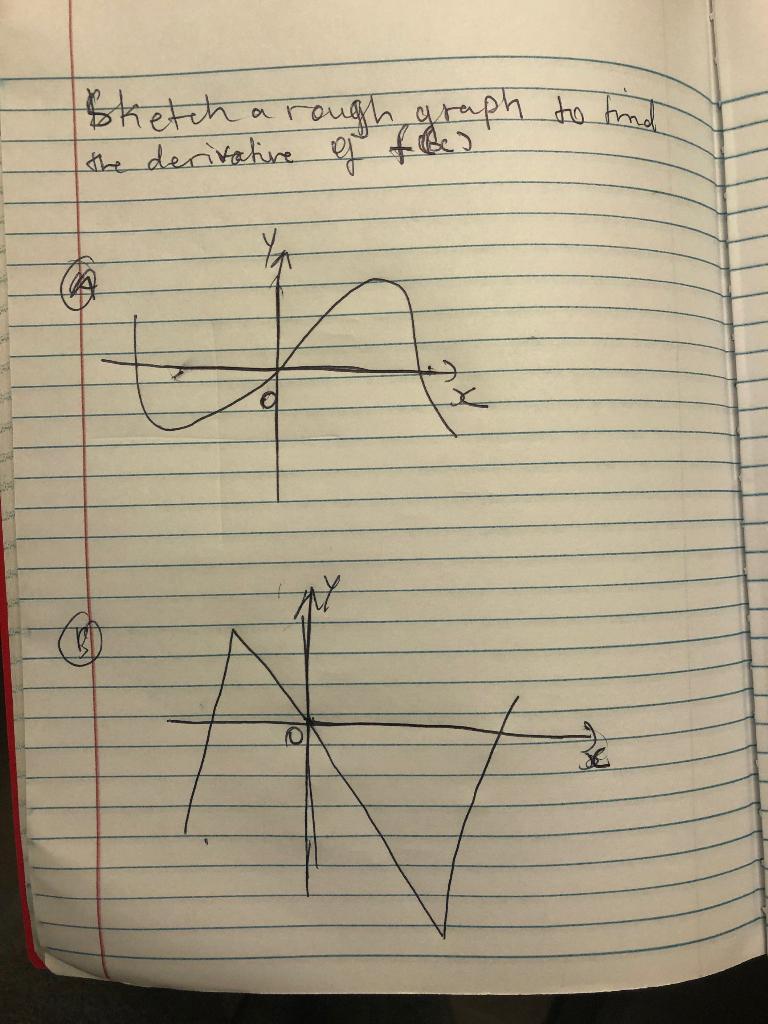 Sketch a rough graph to find
the derivative of f(x)
A
Y
O
x
B
Y
O
x